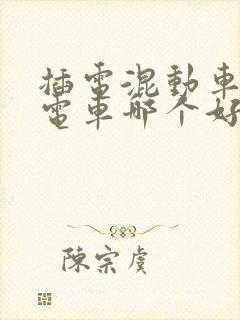 插電混動車
電車哪个好
陳宗虞